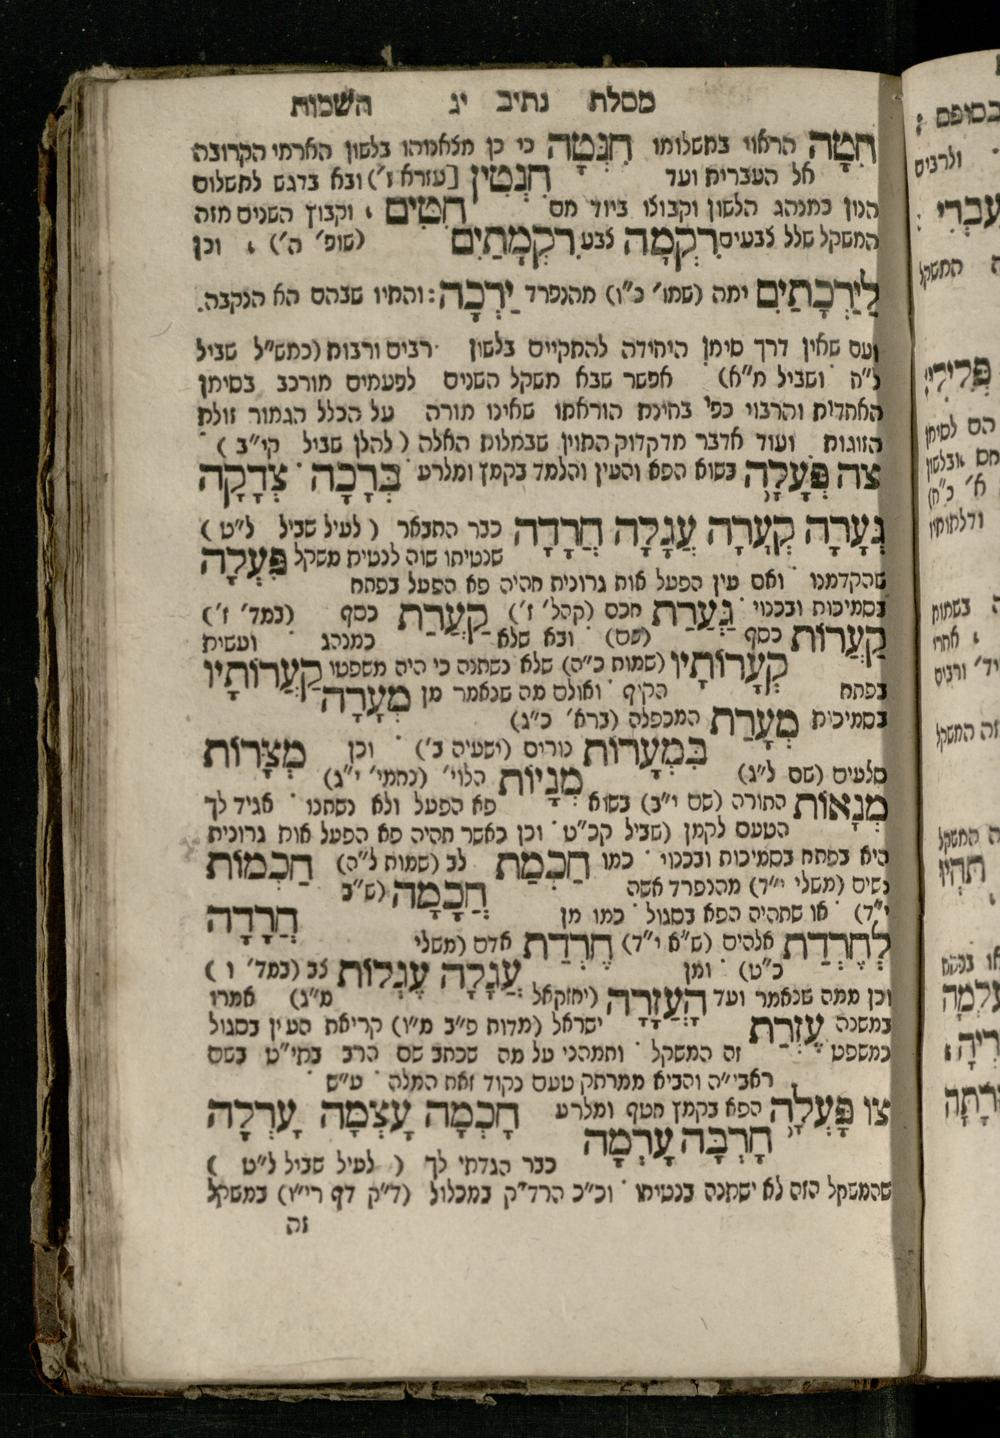 מסלת נתיב יג השמות
חִטָה הראוי בתשלומו חִנְטָה כי כן תמצאוהו בלשון הארמי הקרובה
אל העברית ועד חִנְטִין [עזרא ו') ובא בדגש לתשלום
הנון כמנהג הלשון וקבוצו ביוד מם חִטִים , וקבוץ השנים מזה
המשקל שלל צבעים רִקְמָה צבע רִקְמָתַיִם (שופ' ה') , וכן
לַיַרְכָתַיִם ימה (שמו' כ"ו) מהנפרד יַרְכָה : והתיו שבהם הא הנקבה.
ועם שאין דרך סימן היחידה להתקיים בלשון רבים ורבות (כמש"ל שביל
ל"ח ושביל מ"א) אפשר שבא משקל השנים לפעמים מורכב בסימן
האחדות והרבוי כפי בחינת הוראתו שאינו מורה על הכלל הגמור זולת
הזוגות ועוד אדבר מדקדוק התוין שבמלות האלה (להלן שביל קי"ב)
צה פְּעָלָה בשוא הפא והעין והלמד בקמץ ומלרע בְּרָכָה צְדָקָה
גְּעָרָה קְעָרָה עֲגָלָה חֲרָדָה כבר התבאר (לעיל שביל ל"ט)
שנטיתו שוה לנטית משקל פִּעְלָה
שהקדמנו ואם עין הפעל אות גרונית תהיה פא הפעל בפתח
בסמיכות ובכנוי גַּעֲרַת חכם (קהל' ז') קַעֲרַת כסף (במד' ז')
קַעֲרוֹת כסף (שם) ובא שלא כמנהג ועשית
קְעָרוֹתָיו (שמות כ"ה) שלא נשתנה כי היה משפטו קַעֲרוֹתָיו
בפתח הקוף ואולם מה שנאמר מן מְעָרָה
בסמיכות מְעָרַת המכפלה (ברא' כ"ג)
בִּמְעָרוֹת צורים (ישעיה ב') וכן מְצָרוֹת
סלעים (שם ל"ג) מְנָיוֹת הלוי' (נחמי' י"ג)
מְנָאוֹת התורה (שם י"ב) בשוא פא הפעל ולא נשתנו אגיד לך
הטעם לקמן (שביל קכ"ט וכן כאשר תהיה פא הפעל אות גרונית
היא בפתח בסמיכות ובכנוי כמו חַכְמַת לב (שמות ל"ה) חַכְמוֹת
נשים (משלי י"ד) מהנפרד אשה חֲכָמָה (ש"ב
י"ד) או שתהיה הפא בסגול כמו מן חֲרָדָה
לְחֶרְדַּת אלהים (ש"א י"ד) חֶרְדַּת אדם (משלי
כ"ט) ומן עֲגָלָה עֶגְלוֹת צב (במד' ו)
וכן ממה שנאמר ועד הָעֲזָרָה (יחזקאל מ"ג) אמרו
במשנה עֶזְרַת ישראל (מדות פ"ב מ"ו) קריאת העין בסגול
כמשפט זה המשקל ותמהני על מה שכתב שם הרב בתי"ט בשם
ראבי"ה והביא ממרחק טעם נקוד זאת המלה ע"ש
צו פָּעְלָה הפא בקמץ חטף ומלרע חָכְמָה עָצְמָה עָרְלָה
חָרְבָּה עָרְמָה
כבר הגדתי לך (לעיל שביל ל"ט)
שהמשקל הזה לא ישתנה בנטיתו וכ"כ הרד"ק במכלול (ד"ק דף רי"ו) במשקל
זה
בסופם :
ולרבים
עִבְרִי
המשקל
פְּלִילִי
הם לסימן
ובלשון
א' כ"ח)
בשמות
אחרי
זה המשקל
ה המשקל
או בפתח